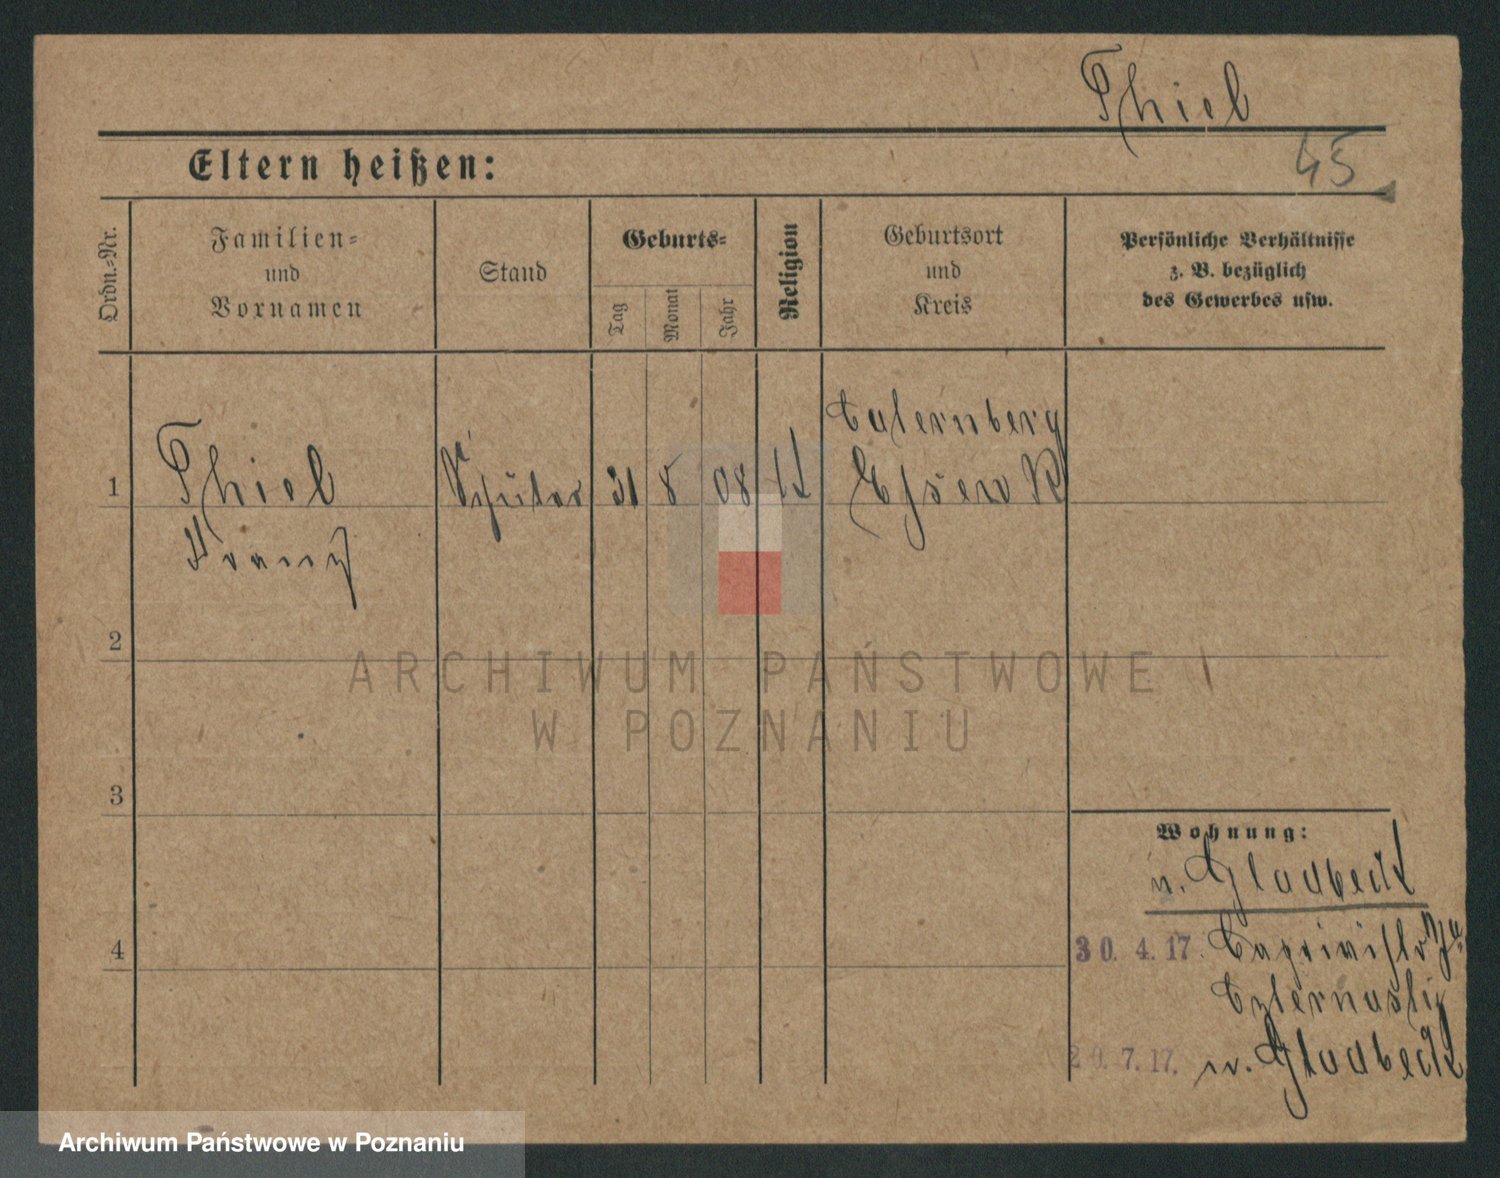 Thiel
45
Eltern heißen:
Ordn.-Nr.
Familien-
und
Vornamen
Stand
Geburts-
Tag
Monat
Jahr
Religion
Geburtsort
und
Kreis
Persönliche Verhältnisse
z. B. bezüglich
des Gewerbes usw.
1
Thiel
Franz
Schüler
31
8
08
Katernberg
Essen
2
3
4
Wohnung:
n. Gladbeck
30. 4. 17.
20. 7. 17. n. Gladbeck
ARCHIWUM PAŃSTWOWE
W POZNANIU
Archiwum Państwowe w Poznaniu